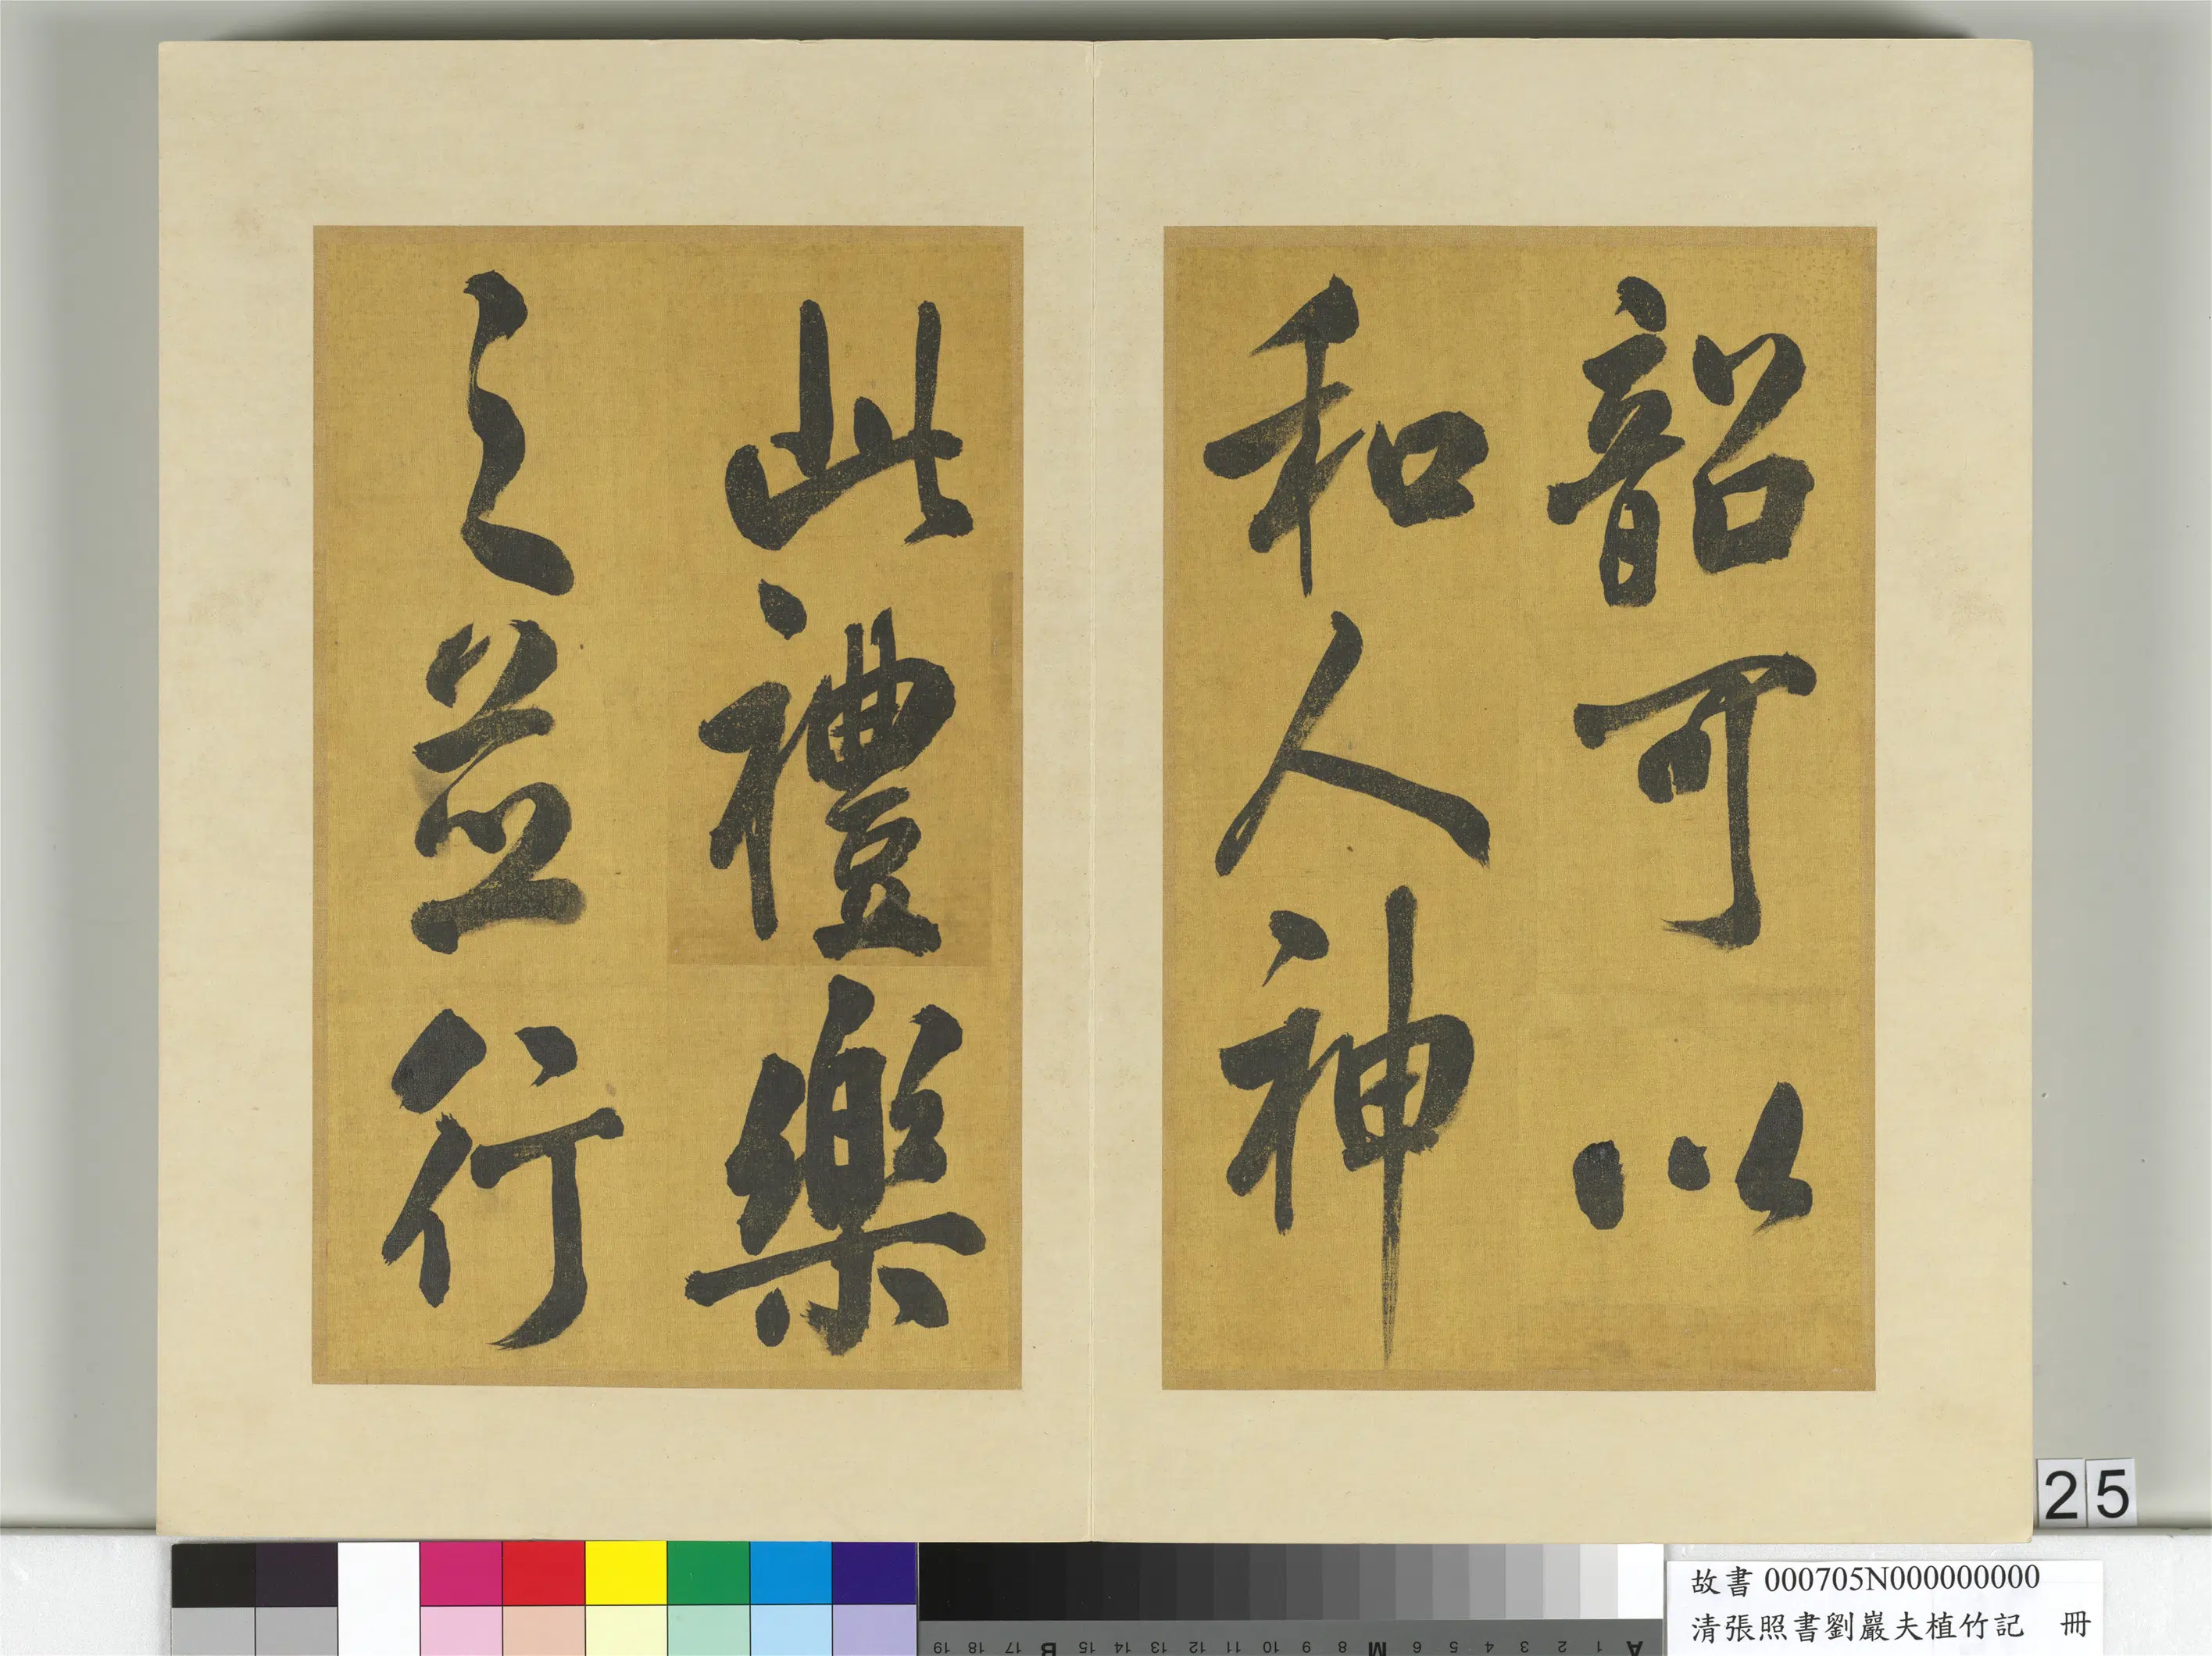 韶可以
和人神
此禮樂
之並行
25
故書 000705N000000000
清張照書劉巖夫植竹記 冊
A 1 2 3 4 5 6 M 8 9 10 11 12 13 14 15 B 17 18 19